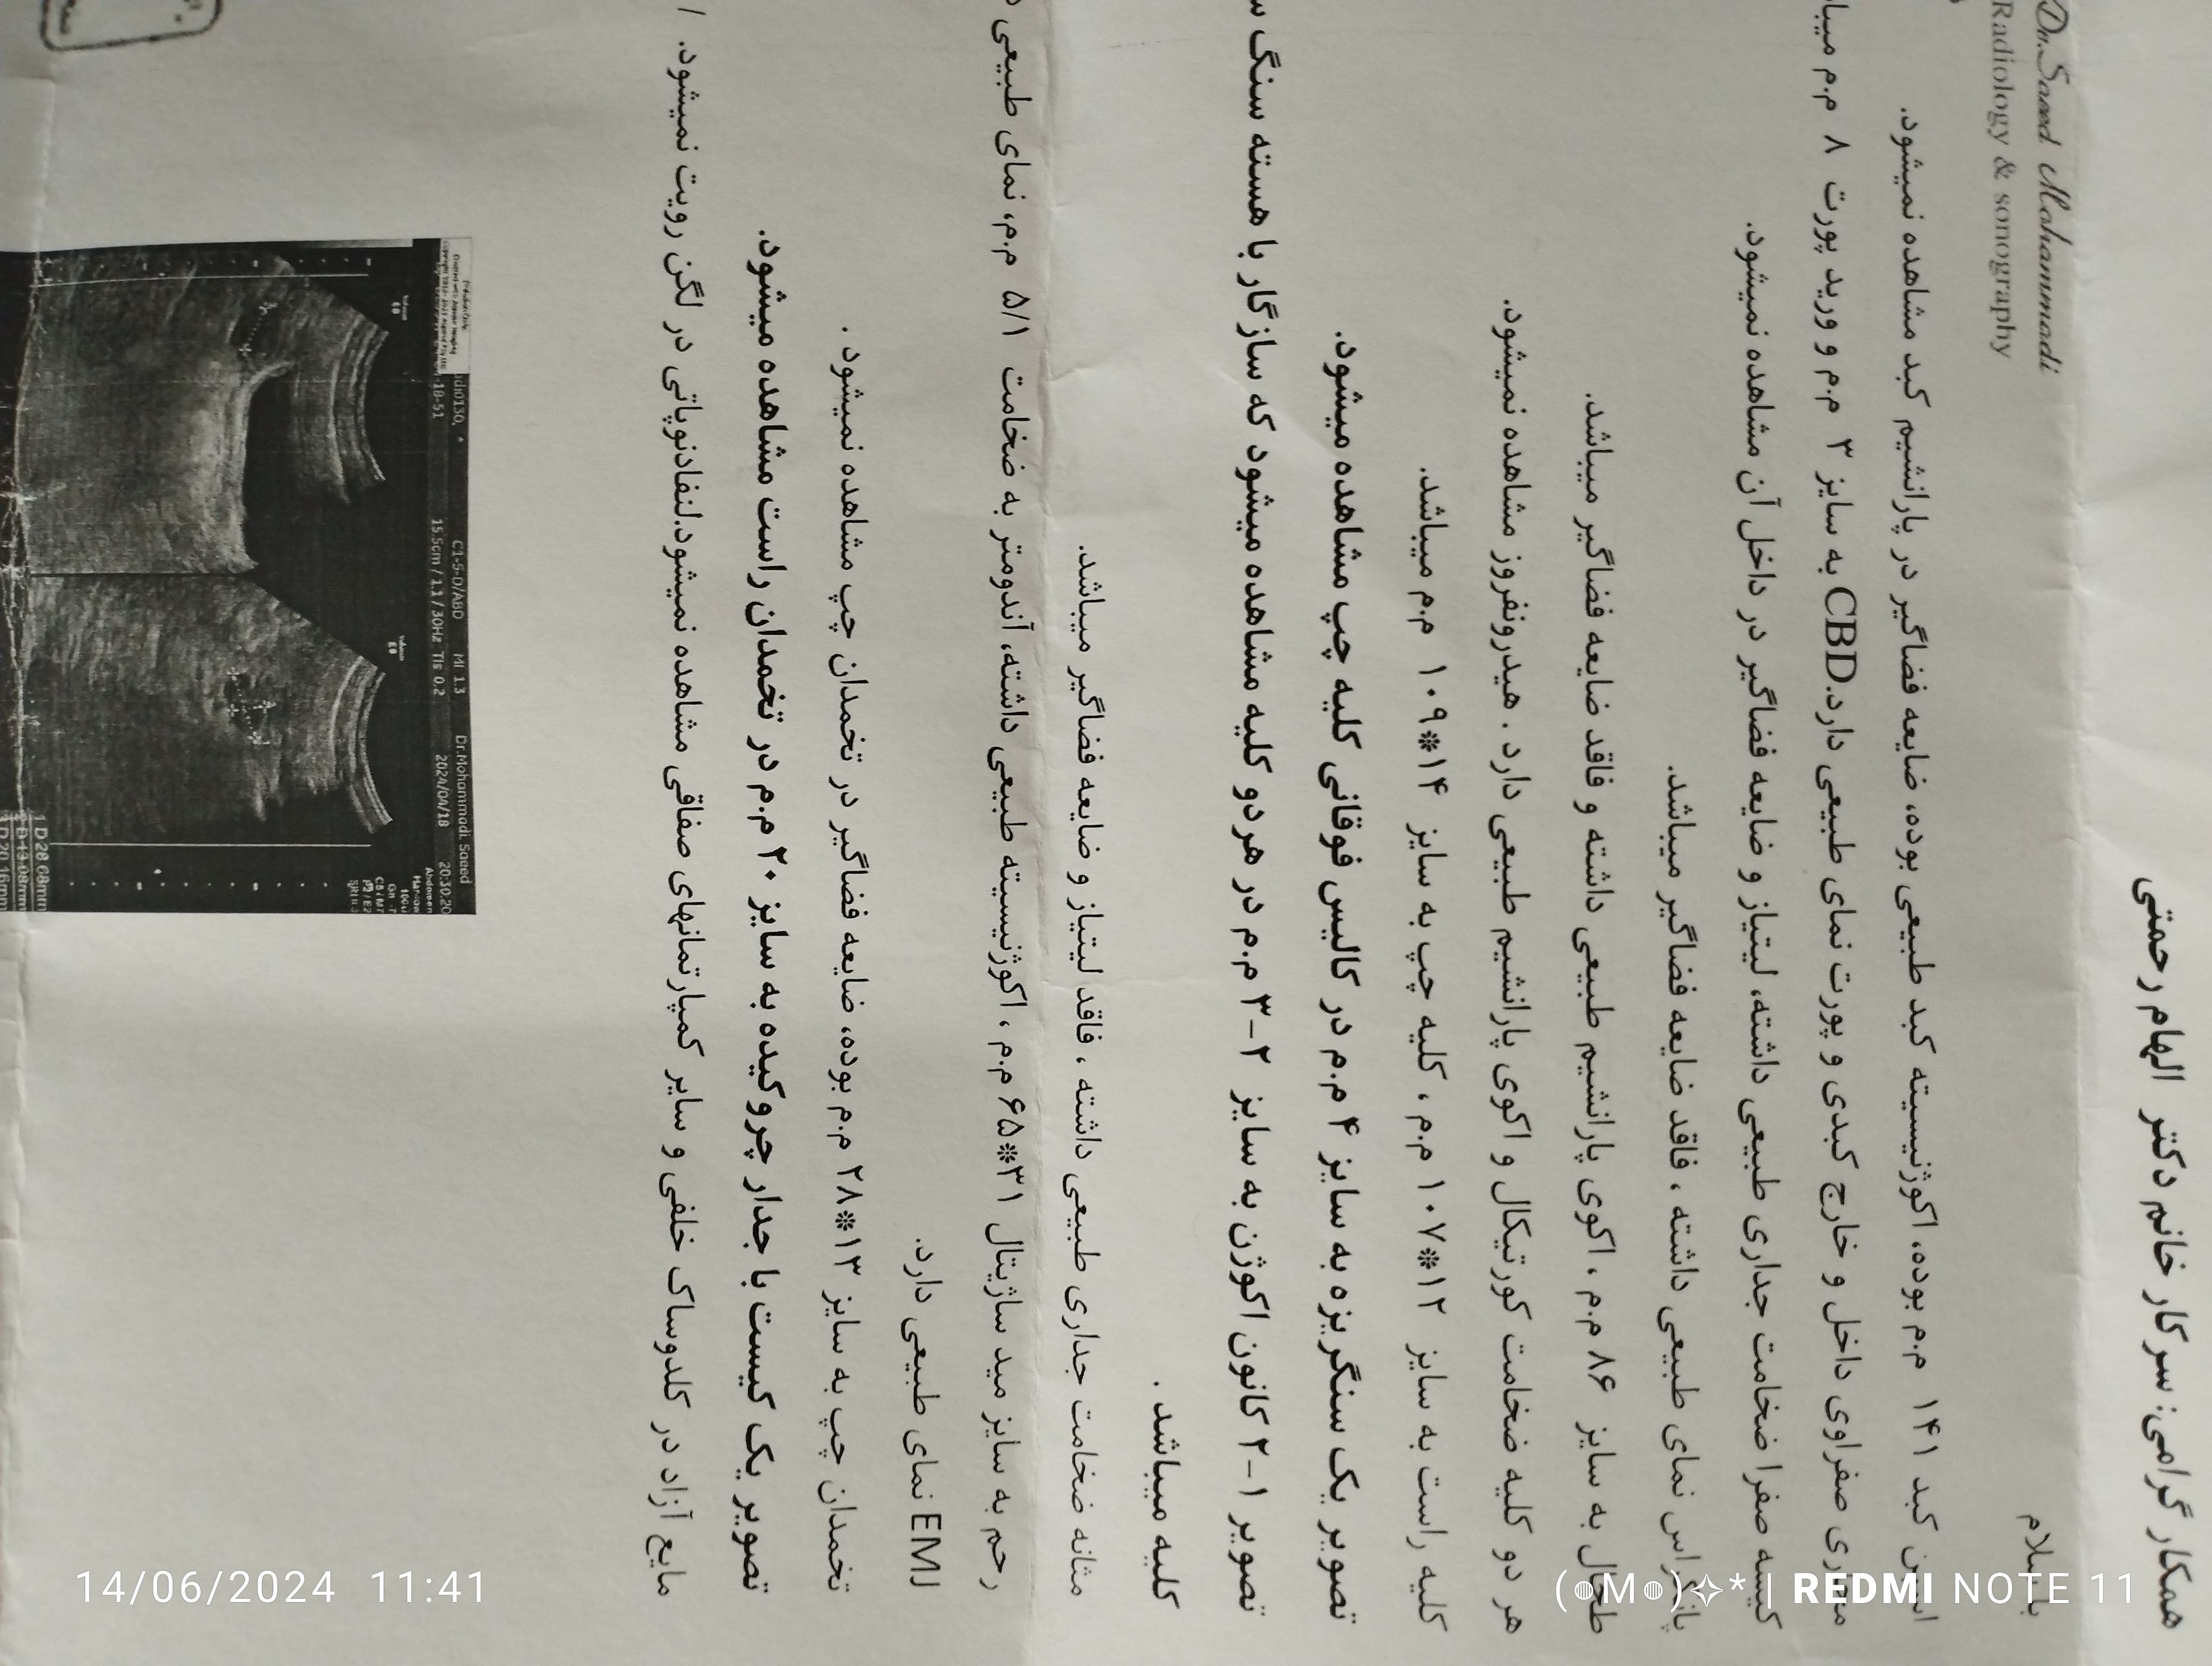 Dr.Saeed Mohammadi
Radiology & sonography
همکار گرامی: سرکار خانم دکتر الهام رحمتی
با سلام
اسپن کبد ۱۴۱ م.م بوده، اکوژنیسیته کبد طبیعی بوده، ضایعه فضاگیر در پارانشیم کبد مشاهده نمیشود.
مجاری صفراوی داخل و خارج کبدی و پورت نمای طبیعی دارد.CBD به سایز ۳ م.م و ورید پورت ۸ م.م
کیسه صفرا ضخامت جداری طبیعی داشته، لیتیاز و ضایعه فضاگیر در داخل آن مشاهده نمیشود.
پانکراس نمای طبیعی داشته ، فاقد ضایعه فضاگیر میباشد.
طحال به سایز ۸۶ م.م ، اکوی پارانشیم طبیعی داشته و فاقد ضایعه فضاگیر میباشد.
هر دو کلیه ضخامت کورتیکال و اکوی پارانشیم طبیعی دارد . هیدرونفروز مشاهده نمیشود.
کلیه راست به سایز ۱۲*۱۰۷ م.م ، کلیه چپ به سایز ۱۴*۱۰۹ م.م میباشد.
تصویر یک سنگریزه به سایز ۴ م.م در کالیس فوقانی کلیه چپ مشاهده میشود.
تصویر ۱-۲ کانون اکوژن به سایز ۲-۳ م.م در هر دو کلیه مشاهده میشود که سازگار با هسته سنگ
کلیه میباشد .
مثانه ضخامت جداری طبیعی داشته ، فاقد لیتیاز و ضایعه فضاگیر میباشد.
رحم به سایز مید ساژیتال ۳۱*۶۵ م.م ، اکوژنیسیته طبیعی داشته، آندومتر به ضخامت ۵/۱ م.م، نمای طبیعی
EMJ نمای طبیعی دارد.
تخمدان چپ به سایز ۱۳*۲۸ م.م بوده، ضایعه فضاگیر در تخمدان چپ مشاهده نمیشود .
تصویر یک کیست با جدار چروکیده به سایز ۲۰ م.م در تخمدان راست مشاهده میشود.
مایع آزاد در کلدوساک خلفی و سایر کمپارتمانهای صفاقی مشاهده نمیشود.لنفادنوپاتی در لگن رویت نمیشود.
Dr.Mohammadi. Saeed
C1-5-D/ABD MI 1.3 2024/04/18 20:30:20
15.5cm / 1.1 / 30Hz TIs 0.2
1 D 28.68mm
14/06/2024 11:41
REDMI NOTE 11